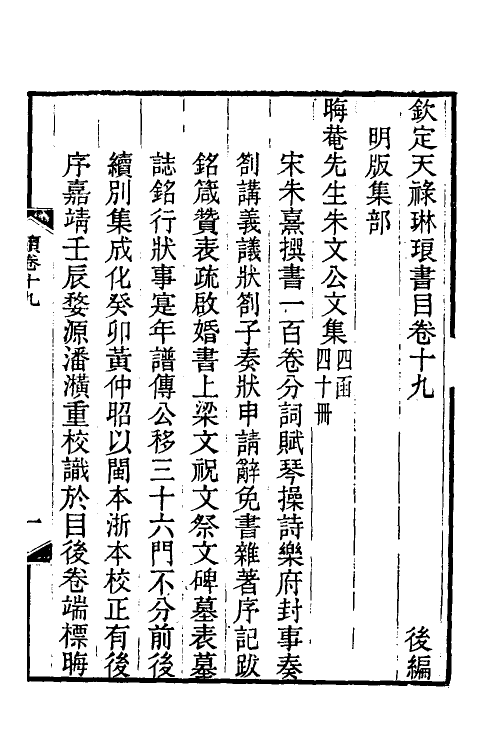 欽定天祿琳琅書目卷十九　後編
明版集部
晦菴先生朱文公文集四函四十冊
宋朱熹撰書一百卷分詞賦琴操詩樂府封事奏
劄講義議狀劄子奏狀申請辭免書雜著序記跋
銘箴贊表疏啟婚書上梁文祝文祭文碑墓表墓
誌銘行狀事寔年譜傳公移三十六門不分前後
續別集成化癸卯黃仲昭以閩本浙本校正有後
序嘉靖壬辰婺源潘潢重校識於目後卷端標晦
卷十九
一